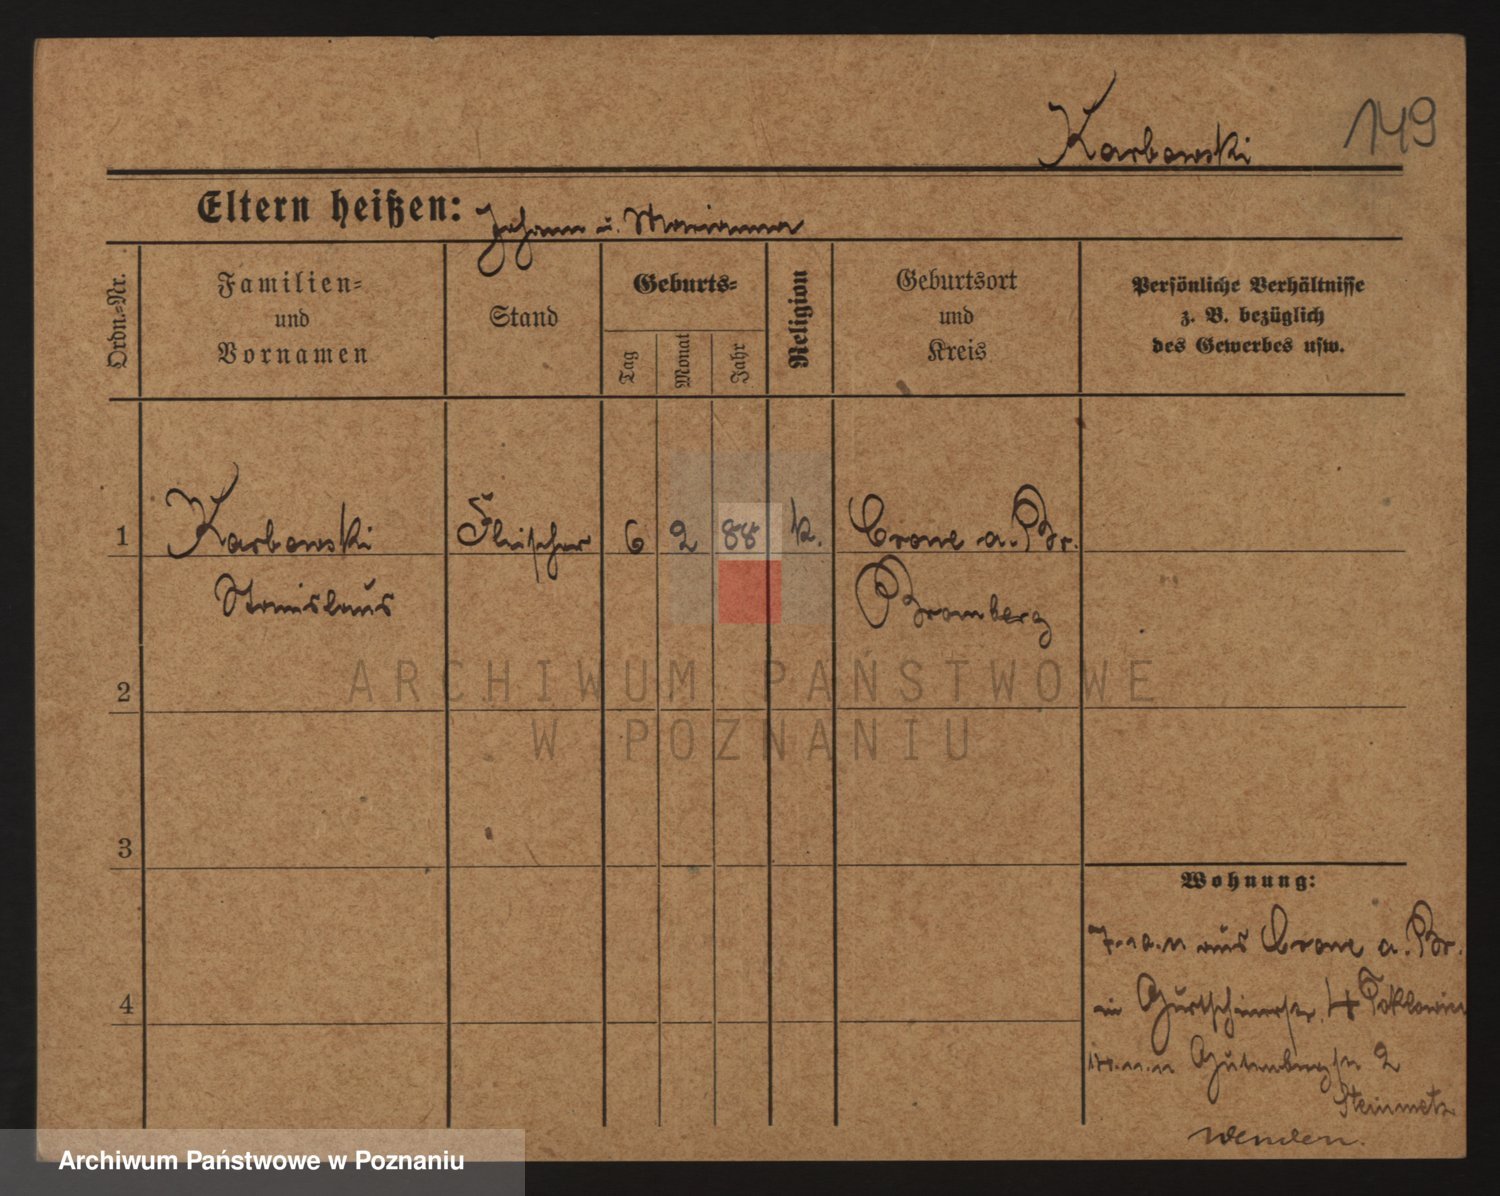 Karbowski
149
Eltern heißen: Johann u. Marianna
Ordn.=Nr.
Familien=
und
Vornamen
Stand
Geburts=
Tag
Monat
Jahr
Religion
Geburtsort
und
Kreis
Persönliche Verhältnisse
z. B. bezüglich
des Gewerbes usw.
1 Karbowski Fleischer 6 2 88 k. Crone a. Br.
Stanislaus Bromberg
2
3
4
Wohnung:
aus Crone a. Br.
in Gurtschinerstr. 4
Gutenbergstr 2
Steinmetz
wenden.
ARCHIWUM PAŃSTWOWE
W POZNANIU
Archiwum Państwowe w Poznaniu